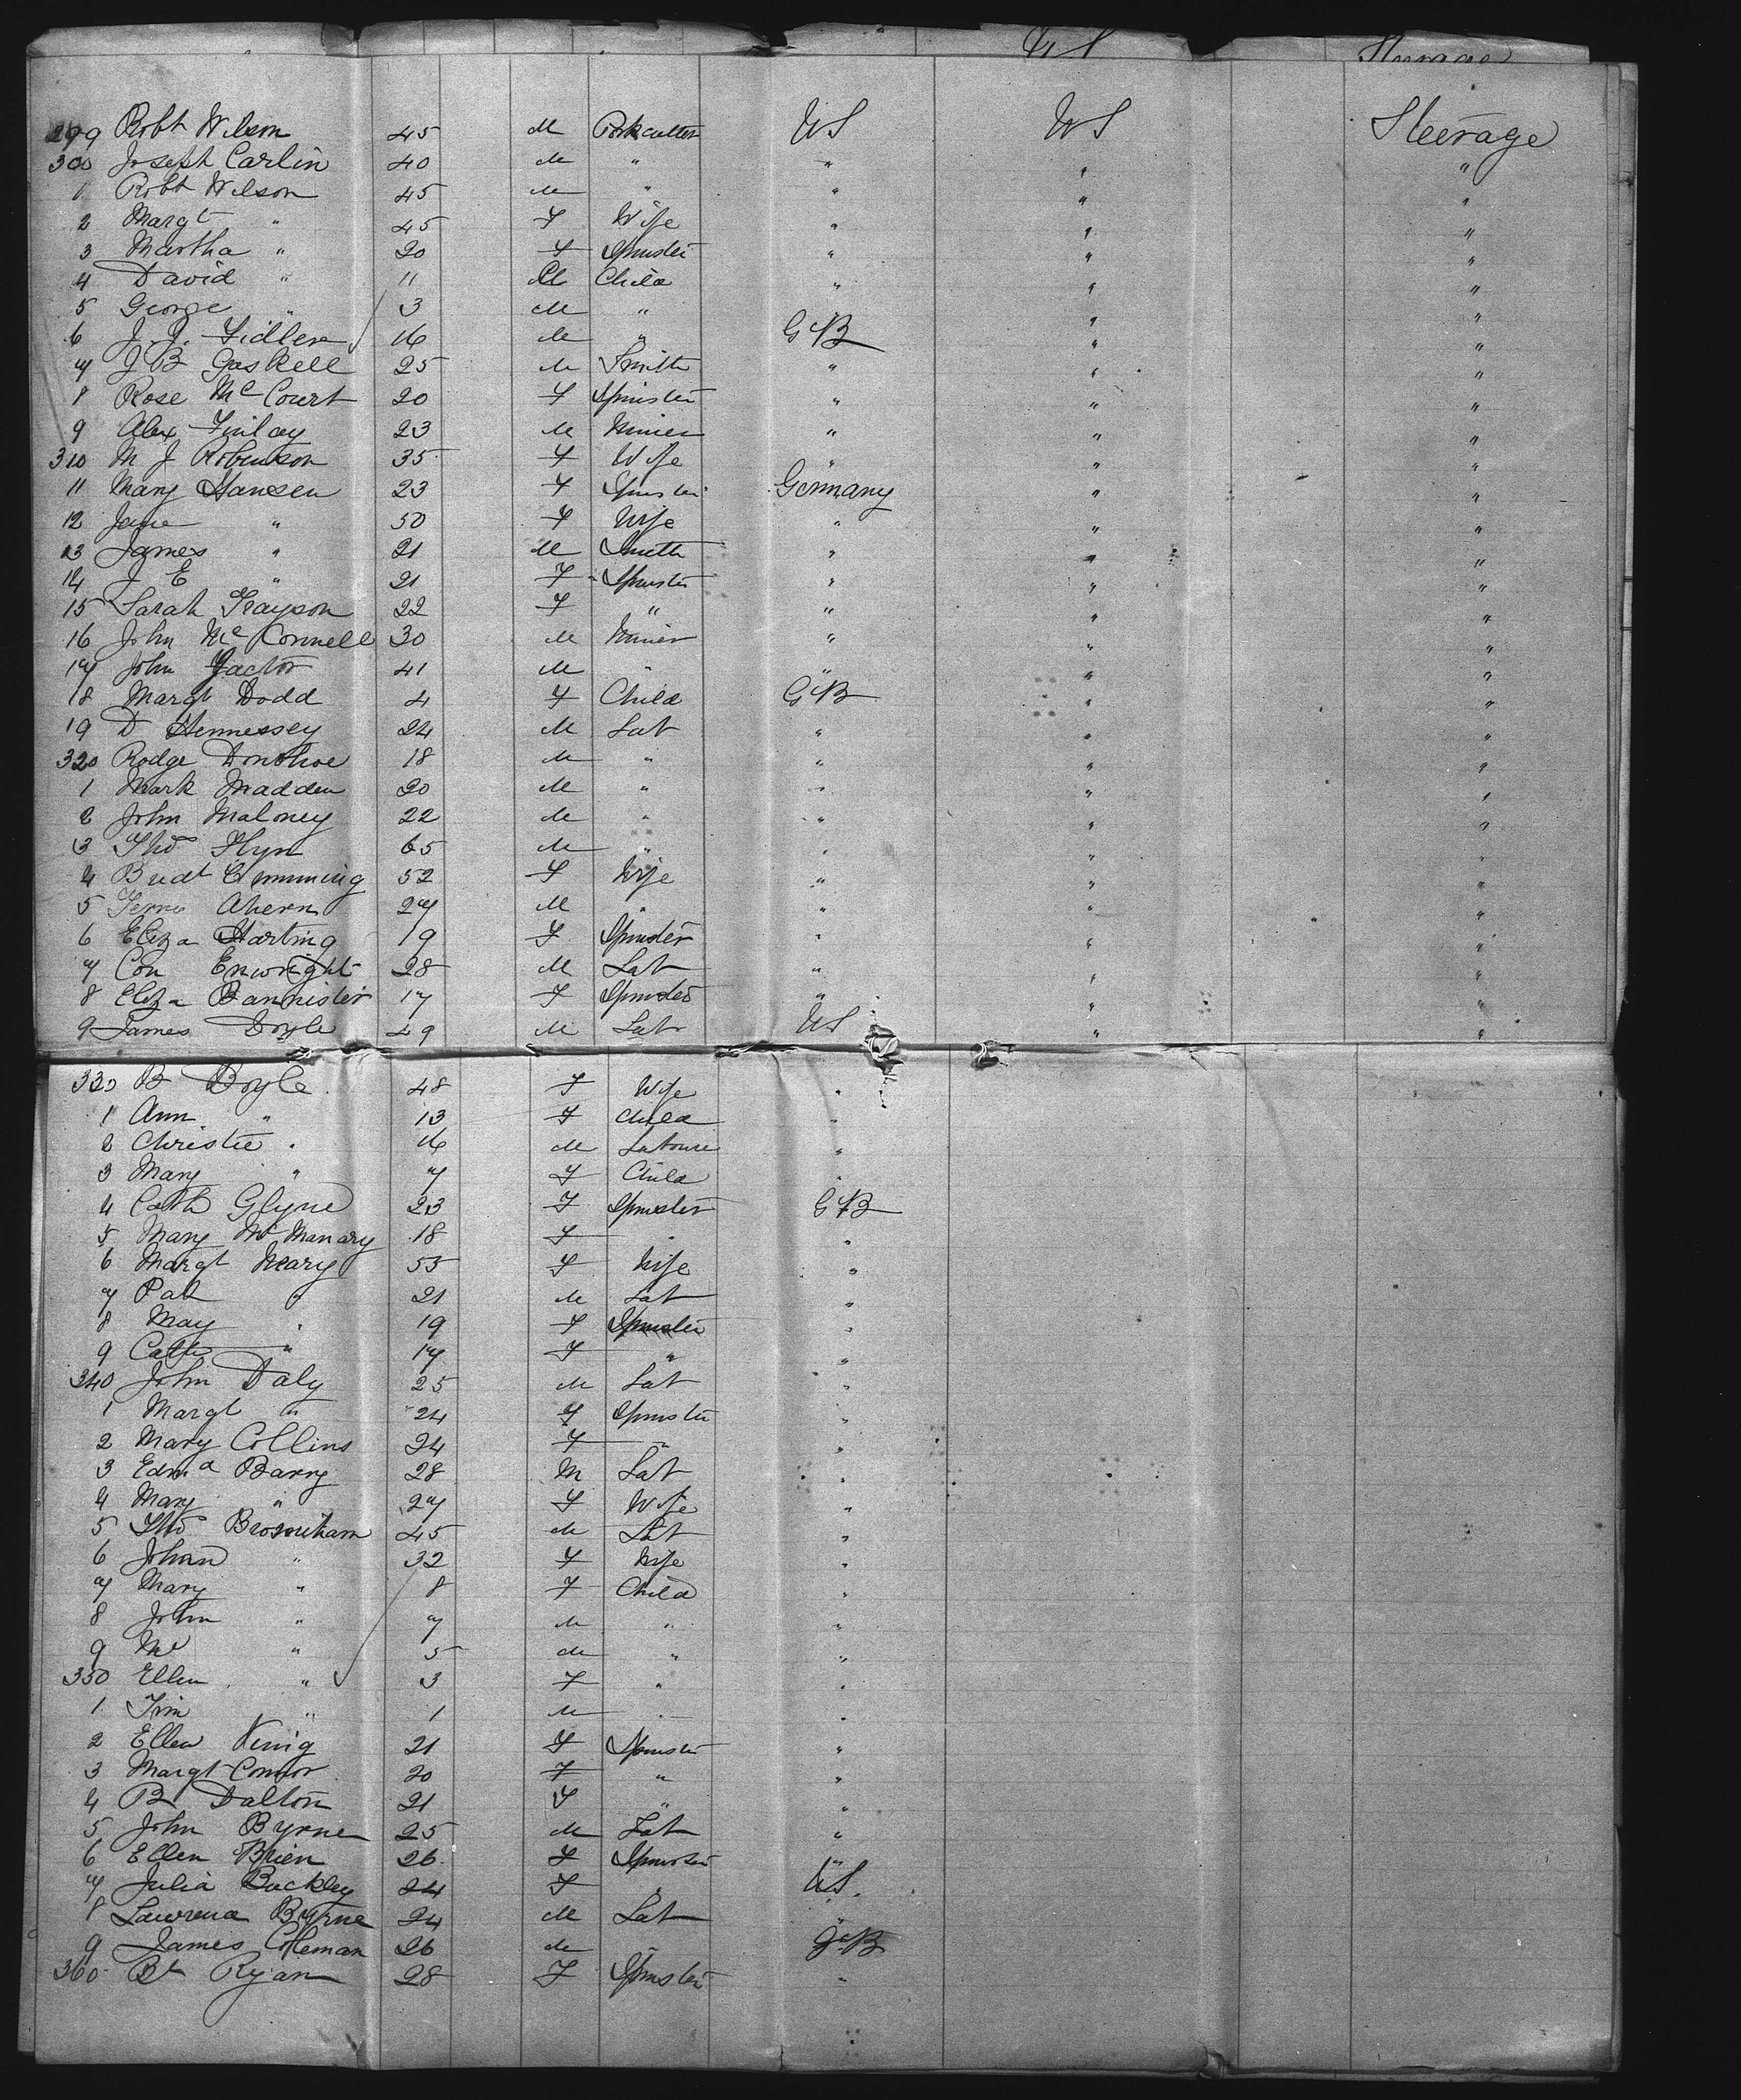 US Steerage
299 Robt Wilson 45 M Porkcutter US US Steerage
300 Joseph Carlin 40 M " " " "
1 Robt Wilson 45 M " " " "
2 Margt " 45 F Wife " " "
3 Martha " 20 F Spinster " " "
4 David " 11 M Child " " "
5 George " 3 M " " "
6 J. J. Fidler 16 M " GB " "
7 J B Gaskell 25 M Smith " " "
8 Rose McCourt 20 F Spinster " " "
9 Alex Finlay 23 M Miner " " "
310 M J Robinson 35 F Wife " " "
11 Mary Hansen 23 F Spinster Germany " "
12 Jane " 50 F Wife " " "
13 James " 21 M Smith " " "
14 J E " 21 F Spinster " " "
15 Sarah Grayson 22 F " " " "
16 John McConnell 30 M Miner " " "
17 John 41 M " " " "
18 Margt Dodd 4 F Child GB " "
19 D Hennessey 24 M Lab " " "
320 Rodge Donohoe 18 M " " " "
1 Mark Madden 20 M " " " "
2 John Maloney 22 M " " " "
3 Tho Flyn 65 M " " " "
4 Bridt Cumming 52 F Wife " " "
5 Ahern 27 M " " " "
6 Eliza Harting 19 F Spinster " " "
7 Con Enwright 28 M Lab " " "
8 Eliza Bannister 17 F Spinster " " "
9 James Doyle 49 M Lab US " "
330 B Doyle 48 F Wife "
1 Ann " 13 F Child "
2 Christie " 16 M Labourer "
3 Mary " 7 F Child "
4 Cath Glynn 23 F Spinster GB
5 Mary McManary 18 F " "
6 Margt Neary 55 F Wife "
7 Pat " 21 M Lab "
8 May " 19 F Spinster "
9 Cath " 17 F " "
340 John Daly 25 M Lab "
1 Margt " 24 F Spinster "
2 Mary Collins 24 F " "
3 Edmd Barry 28 M Lab "
4 Mary " 27 F Wife "
5 Tho Brosniham 45 M Lab "
6 Johan " 32 F Wife "
7 Mary " 8 F Child "
8 John " 7 M " "
9 " 5 M " "
350 Ellen " 3 F " "
1 Tim " 1 M " "
2 Ellen King 21 F Spinster "
3 Margt Connor 20 F " "
4 B Dalton 21 F " "
5 John Byrne 25 M Lab "
6 Ellen Brien 26 F Spinster "
7 Julia Buckley 24 F " US
8 Lawrence Byrne 24 M Lab "
9 James Coleman 26 M " GB
360 Bt Ryan 28 F Spinster "